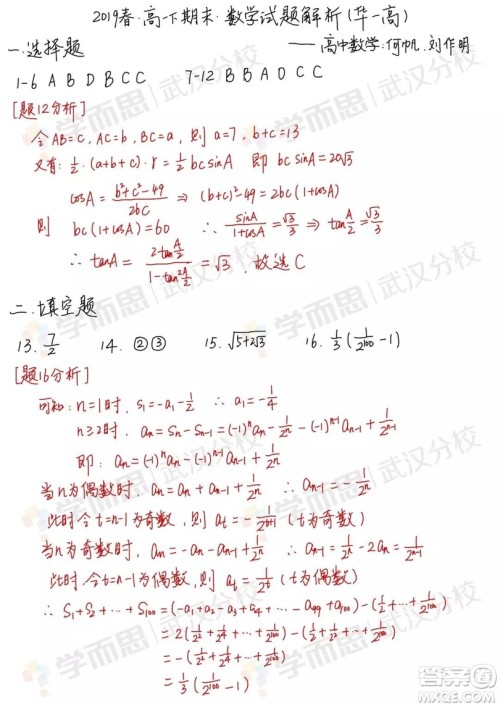 2019春·高一下期末·数学试题解析(华一高)
一.选择题
——高中数学:何帆.刘作明
1-6 A B D B C C 7-12 B B A D C C
[题12分析]
令AB=c, AC=b, BC=a, 则 a=7, b+c=13
又有: 1/2·(a+b+c)·r = 1/2 bc sinA 即 bc sinA=20√3
cosA = (b²+c²-49)/(2bc) ⇒ (b+c)²-49=2bc(1+cosA)
则 bc(1+cosA)=60 ∴ sinA/(1+cosA) = √3/3 ⇒ tan A/2 = √3/3
∴ tanA = (2tan A/2)/(1-tan² A/2) = √3, 故选C
二.填空题
13. 7/2 14. ②③ 15. √(5+2√3) 16. 1/3(1/2^100 -1)
[题16分析]
可知: n=1时, S₁=-a₁-1/2 ∴ a₁=-1/4
n≥2时, aₙ=Sₙ-Sₙ₋₁=(-1)ⁿaₙ-1/2ⁿ-(-1)ⁿ⁻¹aₙ₋₁+1/2ⁿ⁻¹
即: aₙ=(-1)ⁿaₙ-(-1)ⁿ⁻¹aₙ₋₁+1/2ⁿ
当n为偶数时, aₙ=aₙ+aₙ₋₁+1/2ⁿ ∴ aₙ₋₁=-1/2ⁿ
此时令t=n-1为奇数, 则 aₜ=-1/2ᵗ⁺¹ (t为奇数)
当n为奇数时, aₙ=-aₙ-aₙ₋₁+1/2ⁿ ∴ aₙ₋₁=1/2ⁿ-2aₙ=1/2ⁿ⁻¹
此时令t=n-1为偶数, 则 aₜ=1/2ᵗ (t为偶数)
∴ S₁+S₂+…+S₁₀₀=(-a₁+a₂-a₃+a₄+…-a₉₉+a₁₀₀)-(1/2+…+1/2^100)
=2(1/2²+1/2⁴+…+1/2^100)-(1/2+…+1/2^100)
=-(1/2²+1/2⁴+…+1/2^100)
=1/3(1/2^100 -1)
学而思|武汉分校
答案圈
MXQE.COM